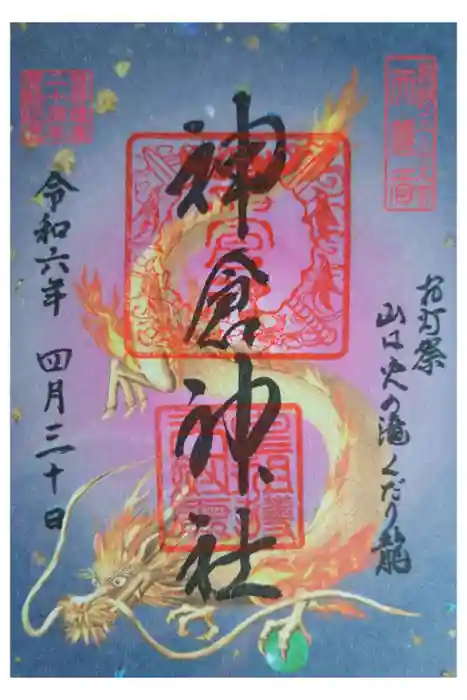 お灯祭
山は火の滝くだり龍
神倉神社
令和六年 四月三十日